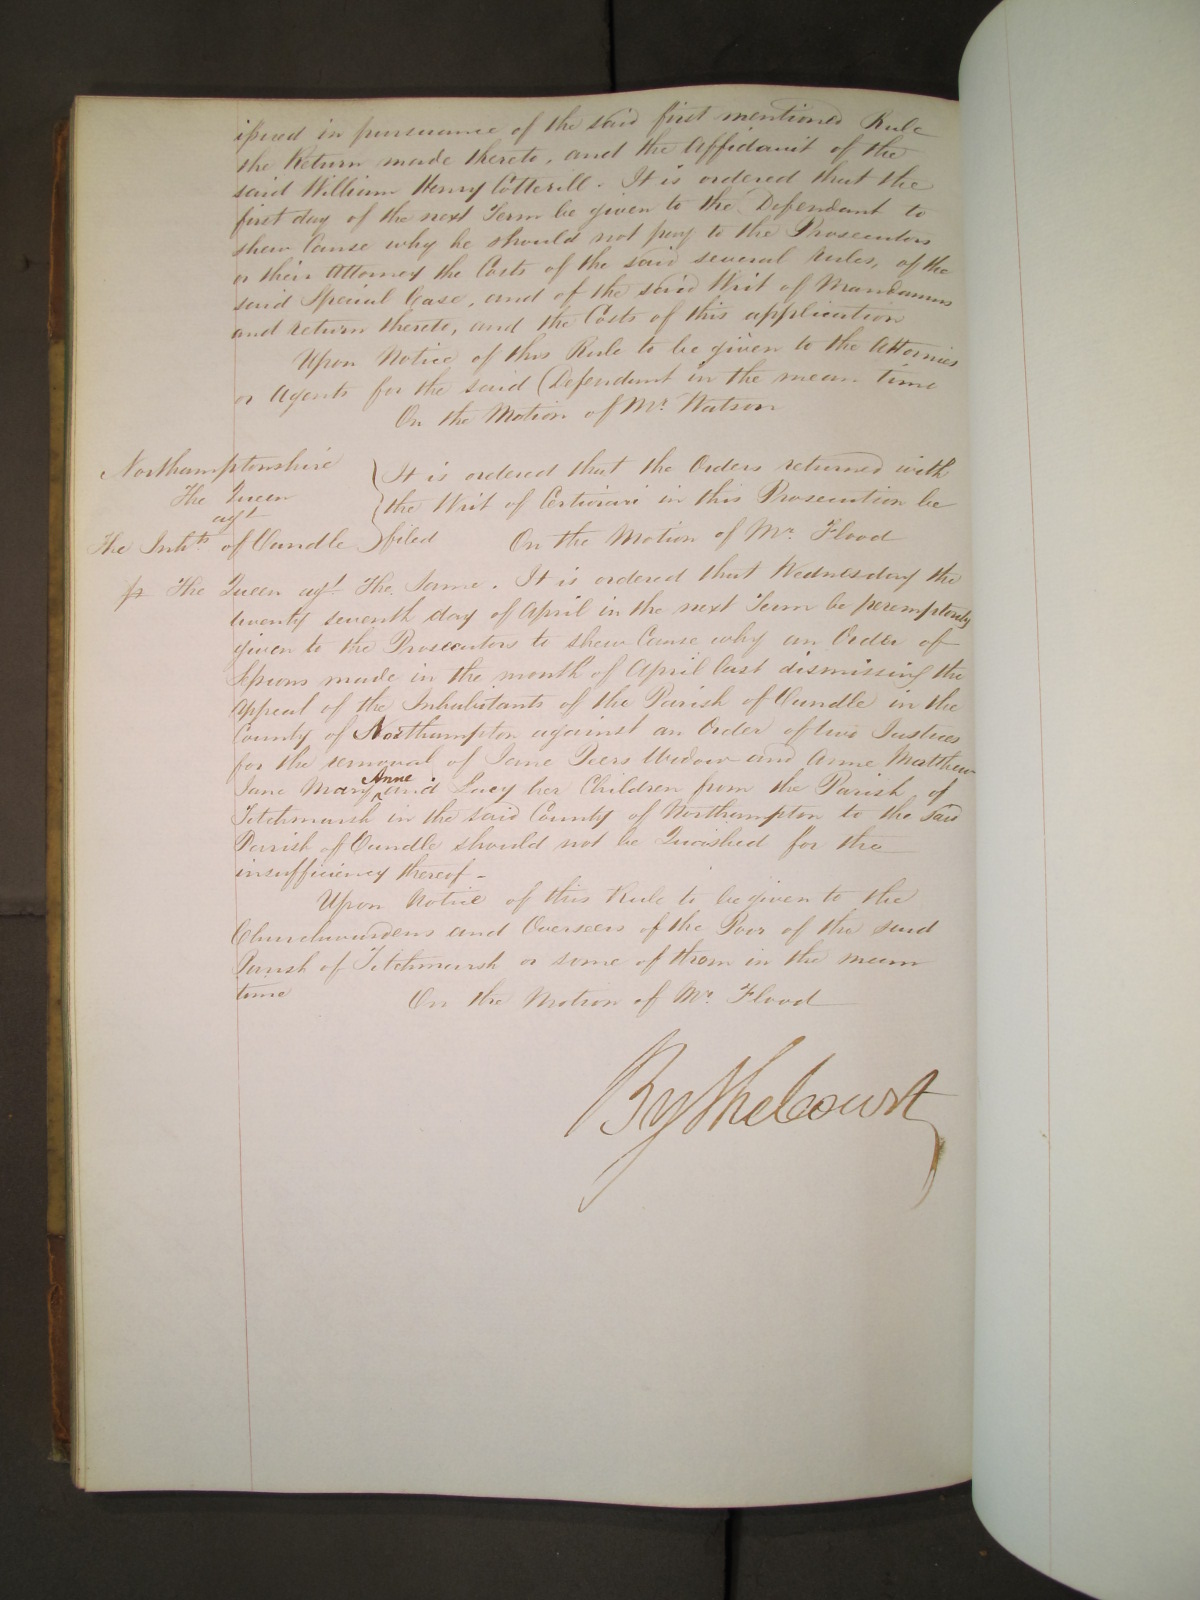 issued in pursuance of the said first mentioned Rule
the Return made thereto, and the Affidavit of the
said William Henry Cotterill. It is ordered that the
first day of the next Term be given to the Defendant to
shew Cause why he should not pay to the Prosecutors
or their Attorney the Costs of the said several rules, of the
said Special Case, and of the said Writ of Mandamus
and return thereto, and the Costs of this application
Upon Notice of this Rule to be given to the Attornies
or Agents for the said Defendant in the mean time
On the Motion of Mr. Watson
Northamptonshire
The Queen
agt
The Inhts of Oundle
It is ordered that the Orders returned with
the Writ of Certiorari in this Prosecution be
filed On the Motion of Mr. Flood
fr The Queen agt. The Same. It is ordered that Wednesday the
twenty seventh day of April in the next Term be peremptorily
given to the Prosecutors to shew Cause why an Order of
Sessions made in the month of April last dismissing the
Appeal of the Inhabitants of the Parish of Oundle in the
County of Northampton against an Order of two Justices
for the removal of Jane Peers Widow and Anne Matthew
Jane Mary Anne and Lucy her Children from the Parish of
Titchmarsh in the said County of Northampton to the said
Parish of Oundle should not be Quashed for the
insufficiency thereof -
Upon Notice of this Rule to be given to the
Churchwardens and Overseers of the Poor of the said
Parish of Titchmarsh or some of them in the mean
time On the Motion of Mr. Flood
By the Court